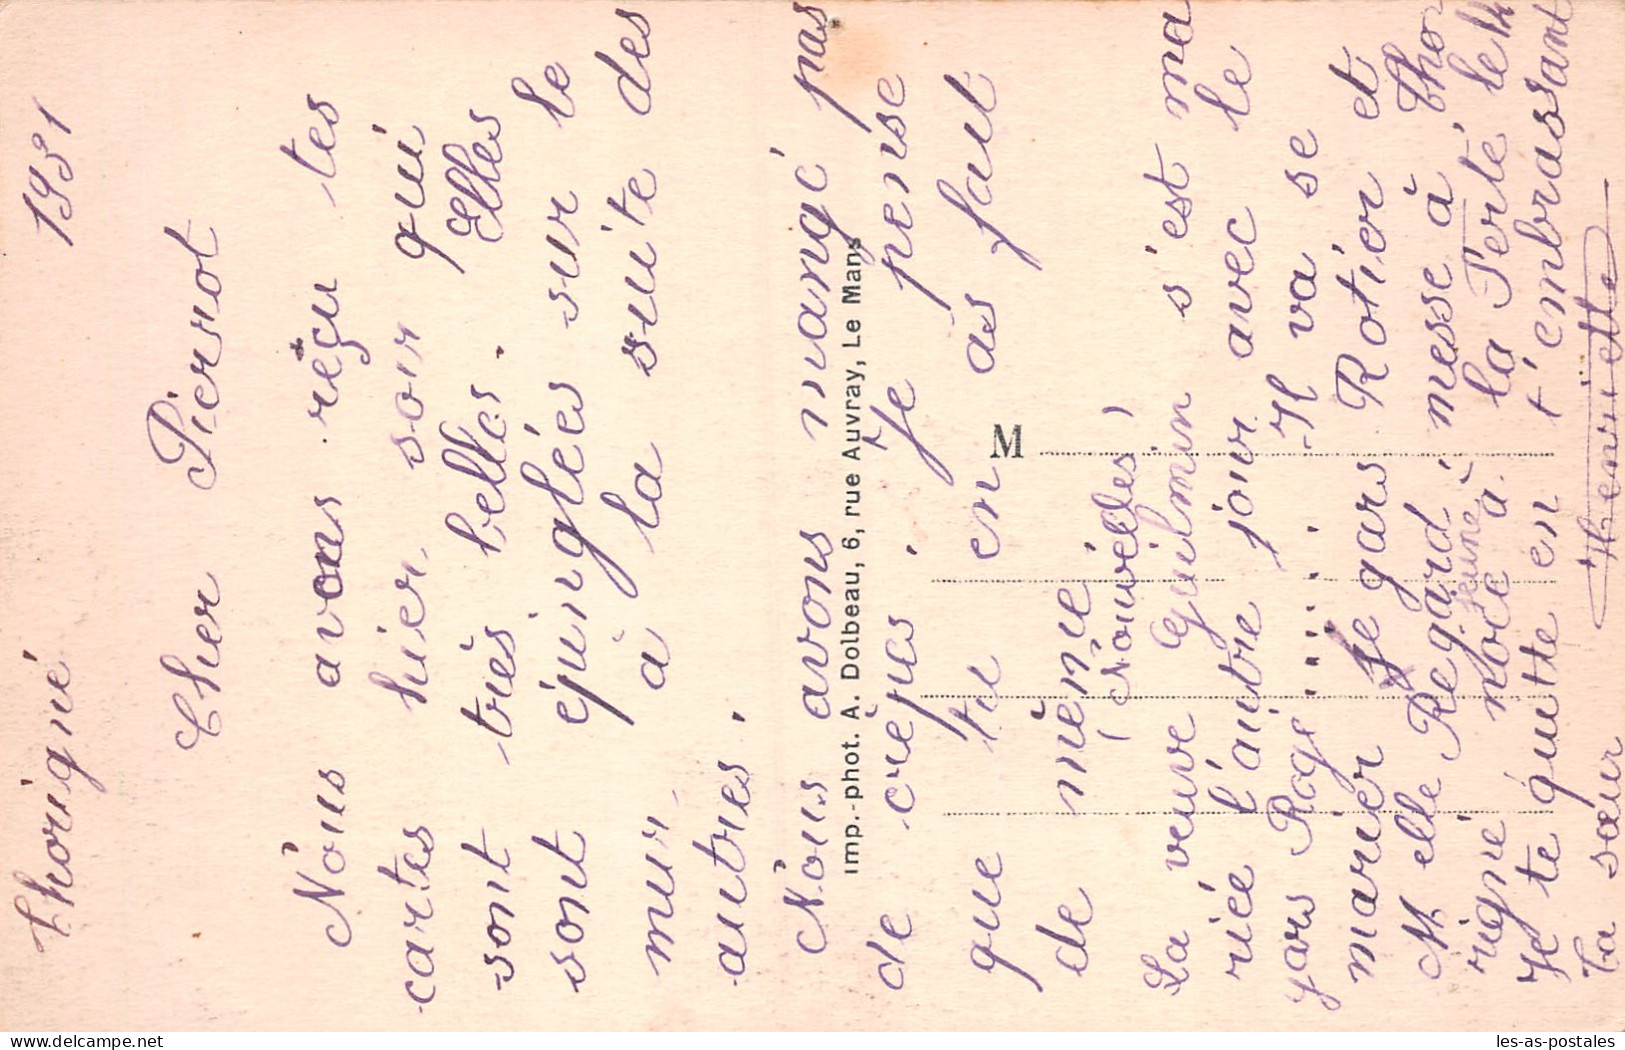 Thorigné 1931
Cher Pierrot
Nous avons reçu tes
cartes hier soir qui
sont très belles. Elles
sont épinglées sur le
mur à la suite des
autres.
Nous avons mangé pas
Imp.-phot. A. Dolbeau, 6, rue Auvray, Le Mans
de crêpes. Je pense
que tu en as fait
M
de mienne
(Nouvelles)
La veuve Guilmin s'est ma
riée l'autre jour avec le
gars Roge . . . . . Il va se
marier le gars Rotier et
Melle Régard, messe à Tho-
rigné noce à la Ferté le
jeune
Je te quitte en t'embrassant
Ta sœur Henriette
www.delcampe.net
les-as-postales